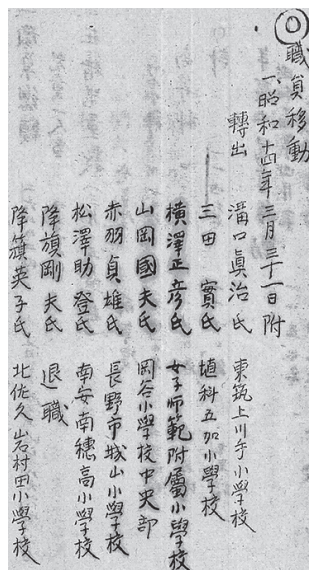 職員移動
一、昭和十四年三月三十一日附
轉出 溝口眞治氏 東筑上川手小學校
三田實氏 埴科五加小學校
横澤正彦氏 女子師範附屬小學校
山岡國夫氏 岡谷小學校中央部
赤羽貞雄氏 長野市城山小學校
松澤助登氏 南安南穂高小學校
降旗剛夫氏 退職
降籏英子氏 北佐久岩村田小學校